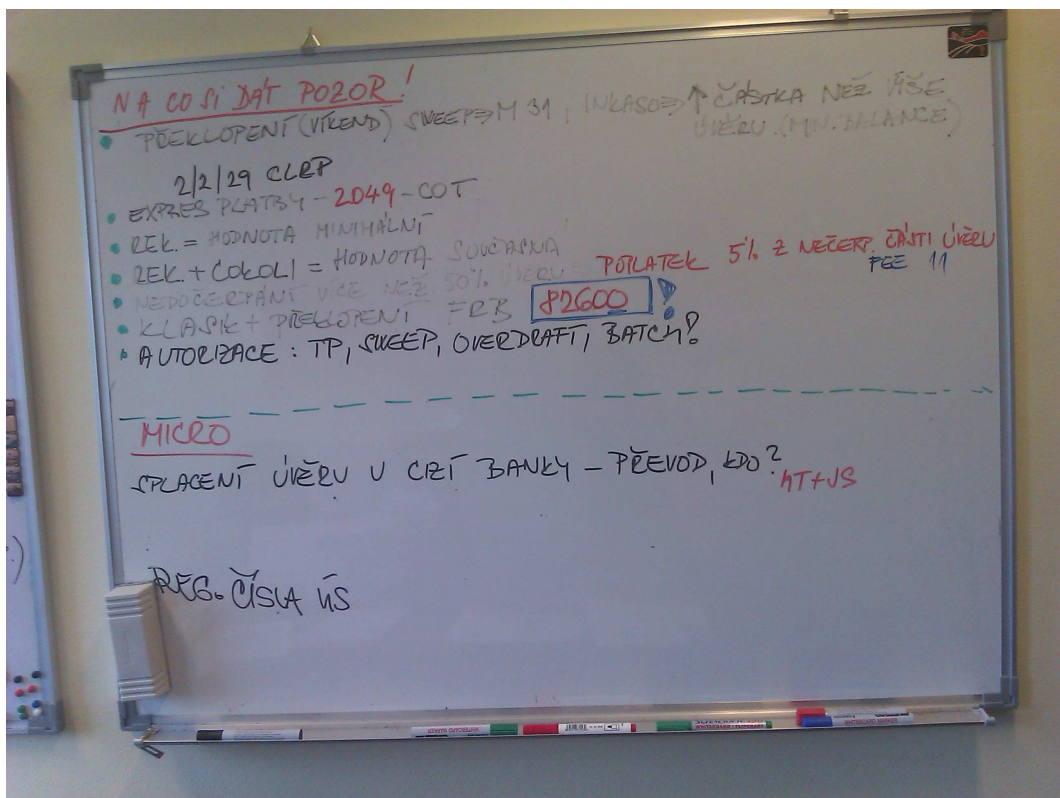 NA CO SI DÁT POZOR!
• PŘEKLOPENÍ (VÍKEND) SWEEP⇒M 31, INKASO⇒↑ ČÁSTKA NEŽ VÝŠE
ÚVĚRU (MN. BALANCE)
2/2/29 CLRP
• EXPRES PLATBY - 2049 - COT
• REK. = HODNOTA MINIMÁLNÍ
• REK. + COKOLI = HODNOTA SOUČASNÁ
• NEDOČERPÁNÍ VÍCE NEŽ 50% ÚVĚRU = POPLATEK 5% Z NEČERP. ČÁSTI ÚVĚRU
FEE 11
• KLASIK + PŘEKLOPENÍ FRB 82600!
• AUTORIZACE: TP, SWEEP, OVERDRAFT, BATCH?
MICRO
SPLACENÍ ÚVĚRU U CIZÍ BANKY – PŘEVOD, KDO?
REG. ČÍSLA ÚS